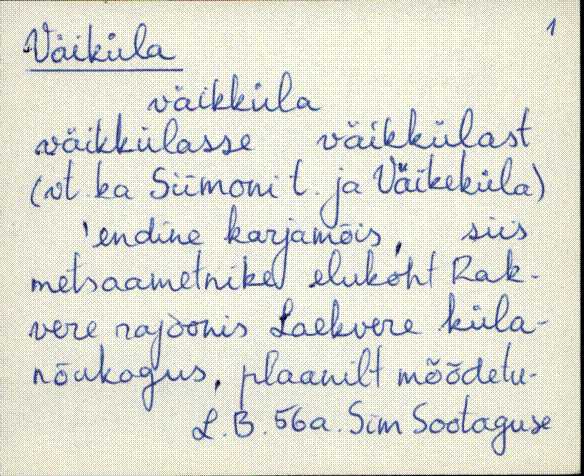 1
Väiküla
väikküla
väikkülasse väikkülast
(vt. ka Siimoni t. ja Väikeküla)
'endine karjamõis, siis
metsaametnike elukoht Rak-
vere rajoonis Laekvere küla-
nõukogus, plaanilt mõõdetu-
L.B. 56a. Sim Sootaguse